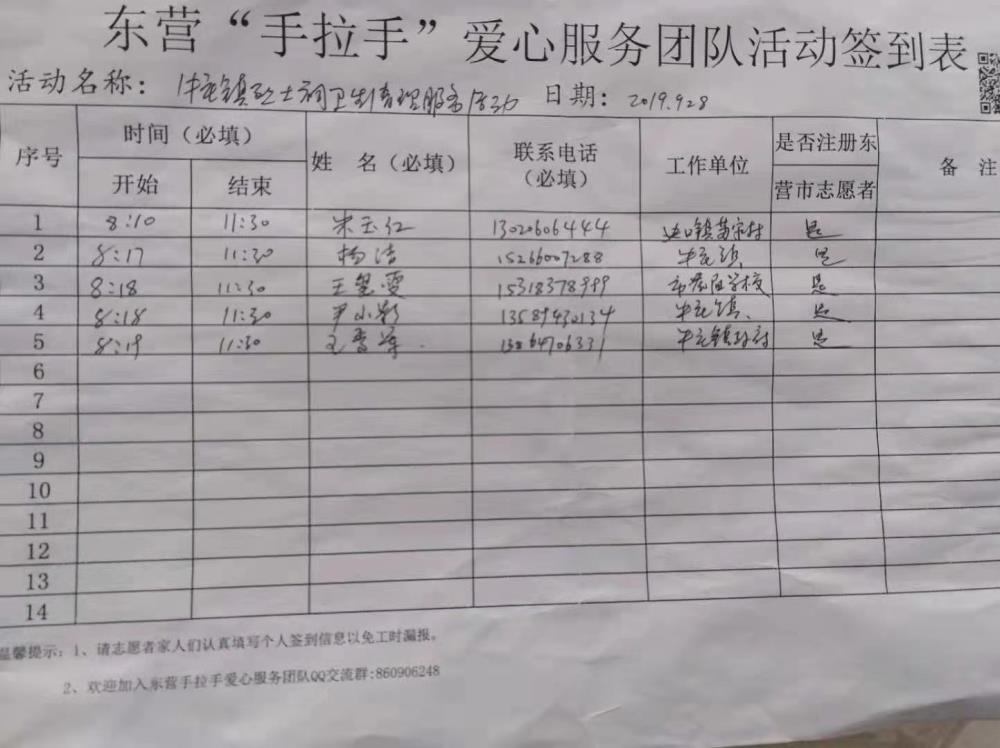 东营“手拉手”爱心服务团队活动签到表
活动名称： 牛庄镇烈士祠卫生清理服务活动 日期： 2019.9.28
序号 时间（必填） 姓 名（必填） 联系电话（必填） 工作单位 是否注册东营市志愿者 备 注
开始 结束
1 8:10 11:30 朱玉红 13020606444 是
2 8:17 11:30 杨洁 15266007288 牛庄镇 是
3 8:18 11:30 15318378999 是
4 8:18 11:30 尹小彩 13589430134 牛庄镇 是
5 8:19 11:30 牛庄镇政府 是
6
7
8
9
10
11
12
13
14
温馨提示：1、请志愿者家人们认真填写个人签到信息以免工时漏报。
2、欢迎加入东营手拉手爱心服务团队QQ交流群:860906248